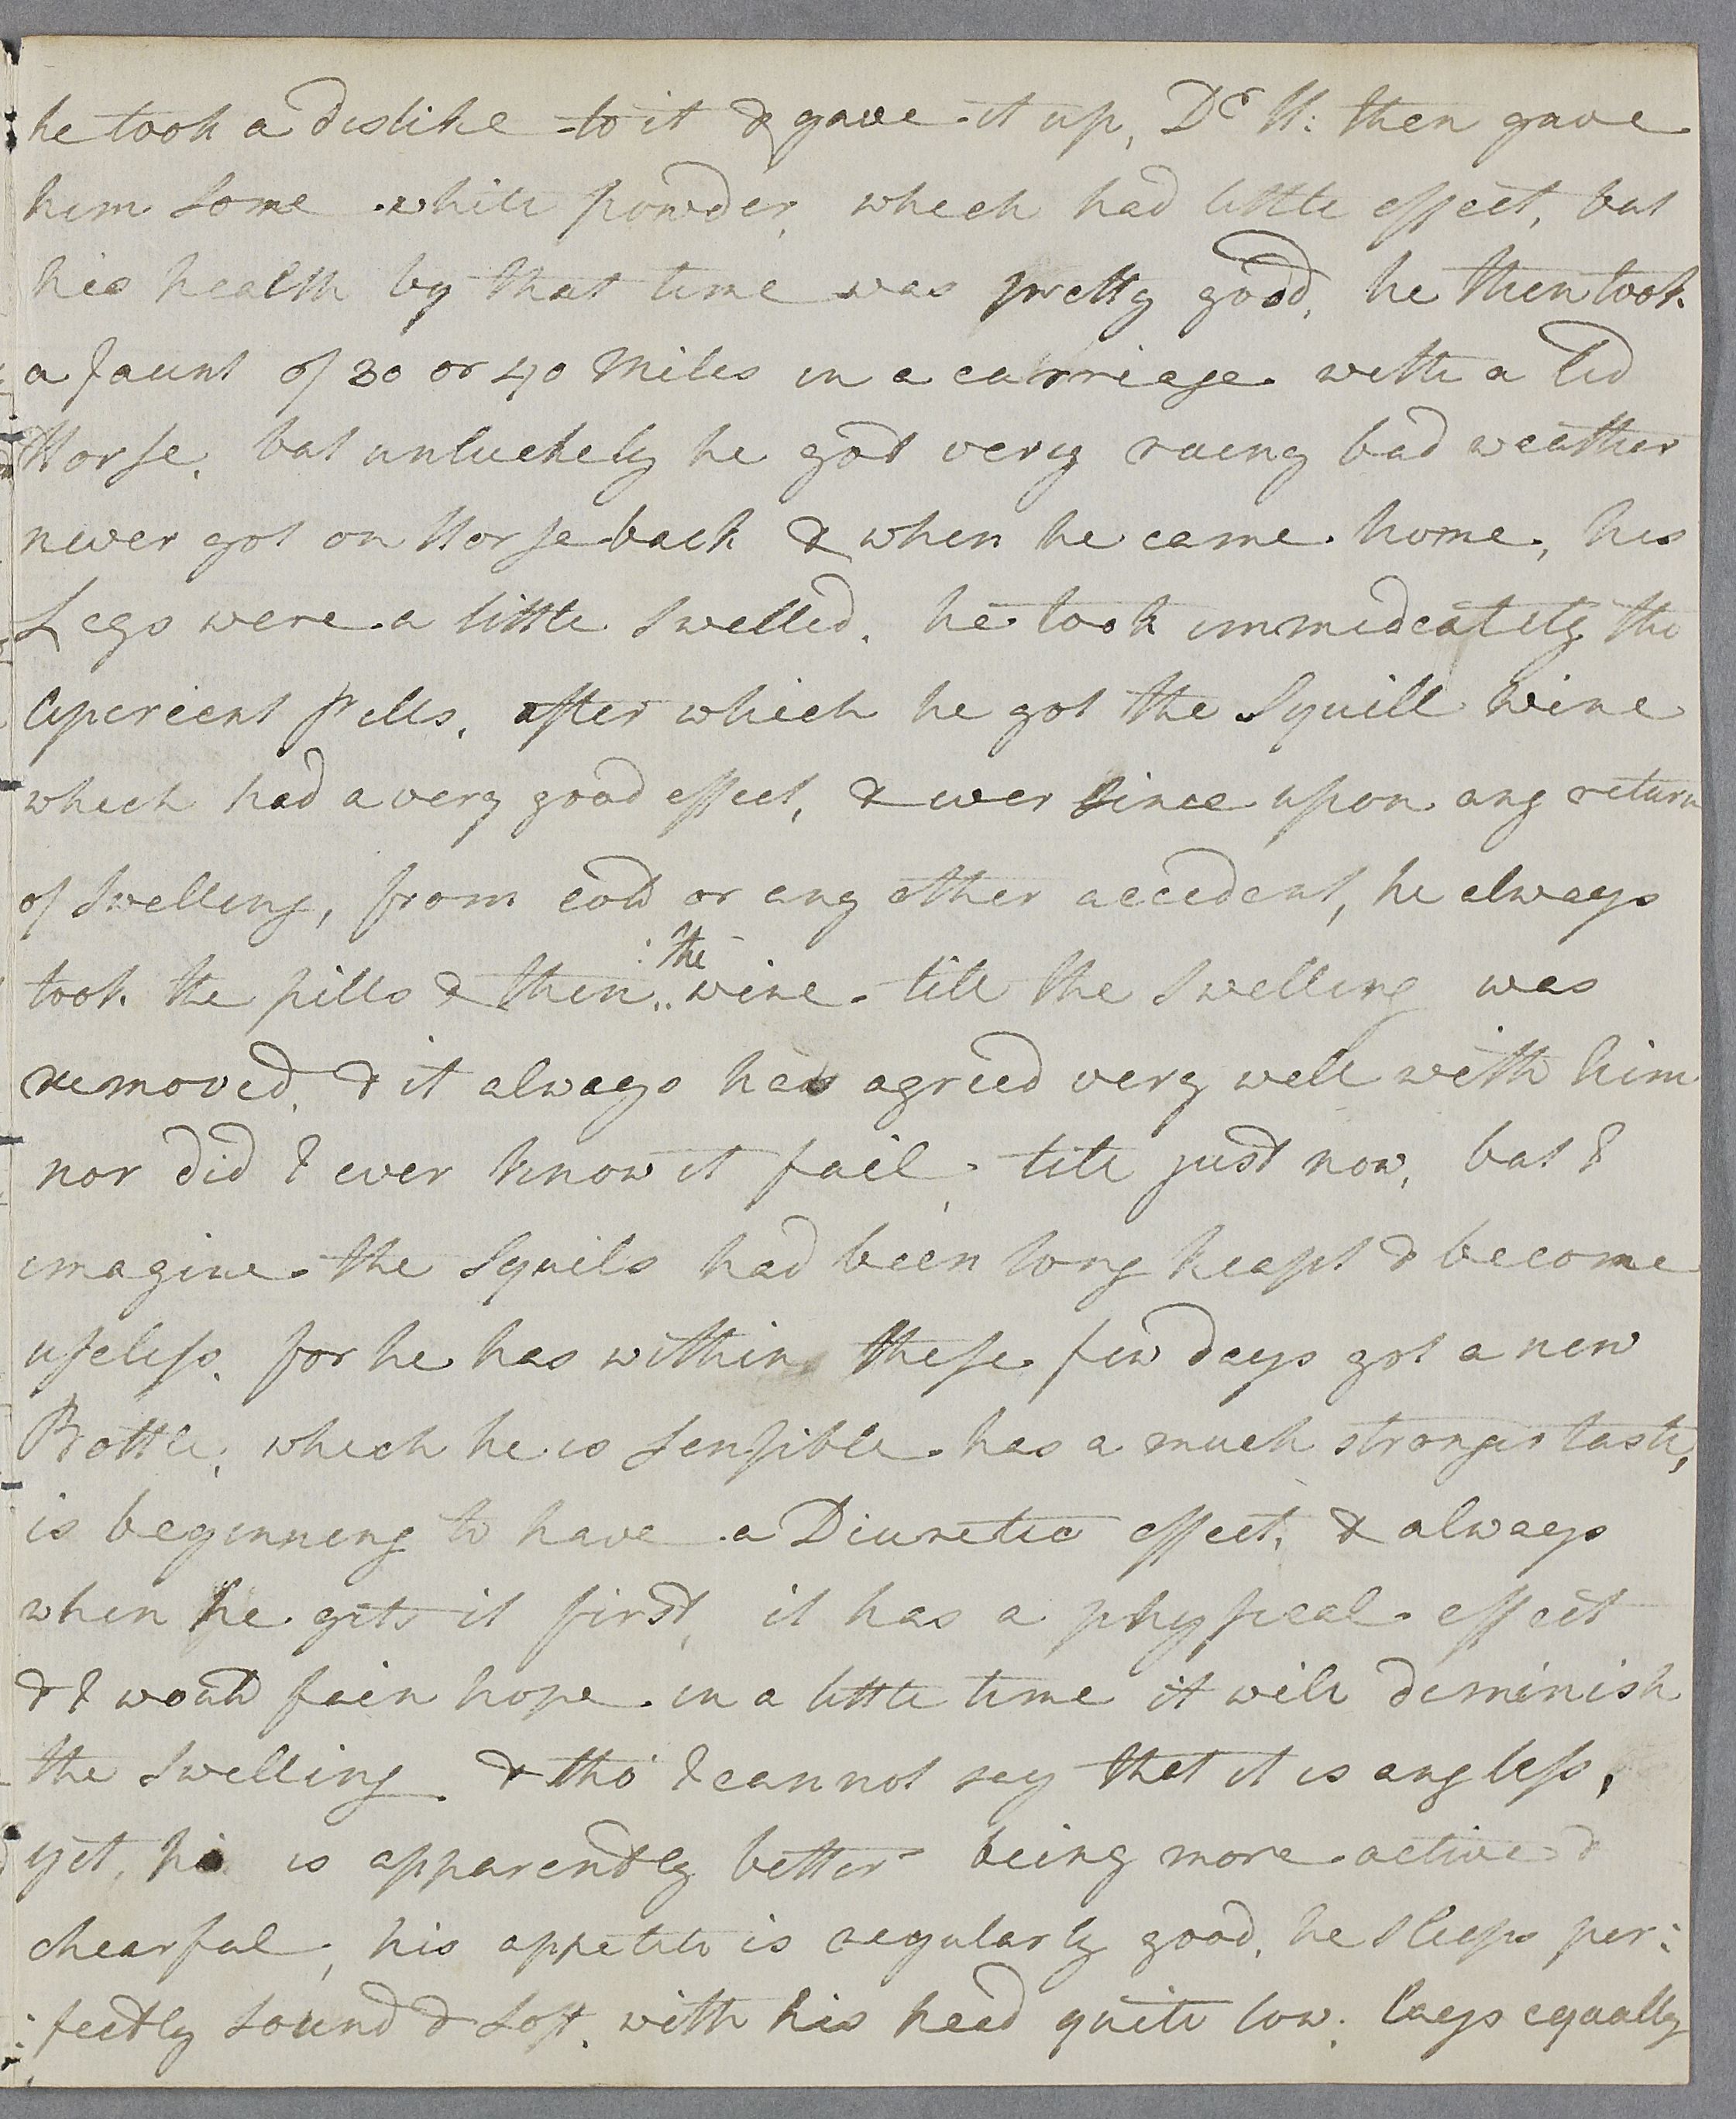 he took a dislike to it & gave it up, Dr H: then gave
him some white powder, which had little effect, but
his health by that time was pretty good, he then took
a Jaunt of 30 or 40 Miles in a carriage with a led
Horse, but unluckely he got very rueng bad weather
never got on Horse back & when he came home, his
Legs were a little Swelled, he took immedeatety the
Apereent Pells, after which he got the Squill Wine
which had a very good effect, & ever Since upon any return
of Swelling, from cold or any other accedent, he always
took the pills & then the wine till the Swelling was
removed, & it always has agreed very well with him
nor did I ever know it fail, till just now, but I
imagine the Squils had been long keapt & become
useless, for he has within these few days got a new
Bottle, which he is Sensible has a much stronger taste,
is beginning to have a Diuretic effect, & always
when he gets it first, it has a physical effect
& I would fain hope in a little time it will deminish
the Swelling & tho' I cannot say that it is any less,
yet, he is apparently better being more active &
chearful, his appetite is regularly good, he Sleeps per:
:fectly Sound & Soft, with his head quite low, lays equally